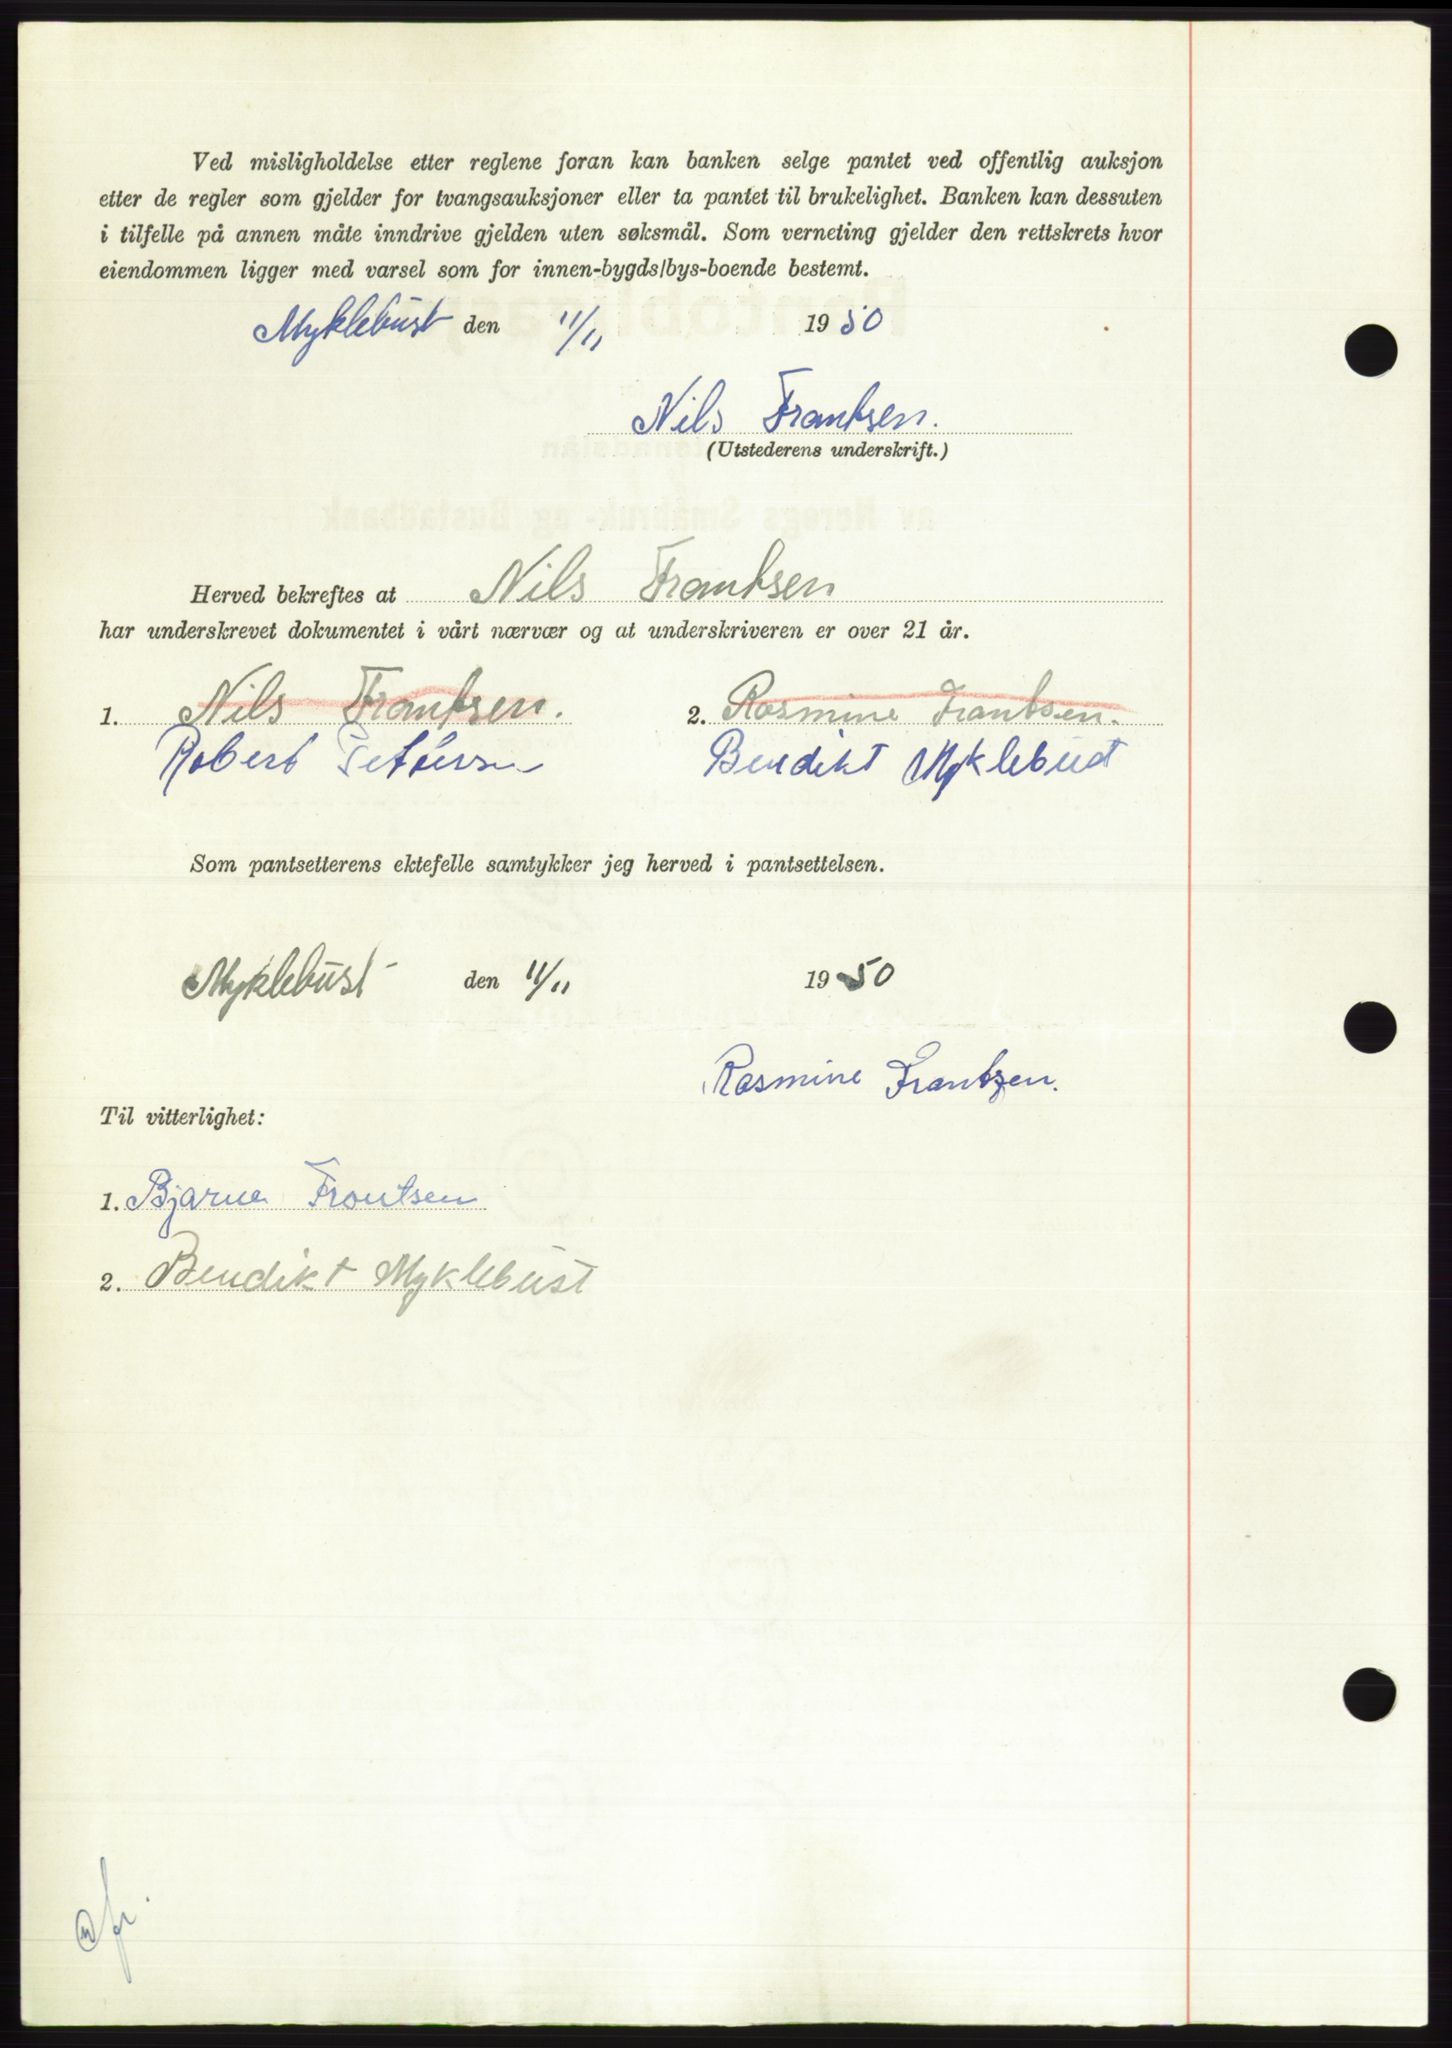 Ved misligholdelse etter reglene foran kan banken selge pantet ved offentlig auksjon
etter de regler som gjelder for tvangsauksjoner eller ta pantet til brukelighet. Banken kan dessuten
i tilfelle på annen måte inndrive gjelden uten søksmål. Som verneting gjelder den rettskrets hvor
eiendommen ligger med varsel som for innen-bygds/bys-boende bestemt.
Myklebust den 11/11 1950
Nils Frantsen.
(Utstederens underskrift.)
Herved bekreftes at Nils Frantsen
har underskrevet dokumentet i vårt nærvær og at underskriveren er over 21 år.
1. Nils Frantsen. 2. Rasmine Frantsen.
Robert Bendikt Myklebust
Som pantsetterens ektefelle samtykker jeg herved i pantsettelsen.
Myklebust den 11/11 1950
Rasmine Frantzen.
Til vitterlighet:
1. Bjarne Frantsen
2. Bendikt Myklebust